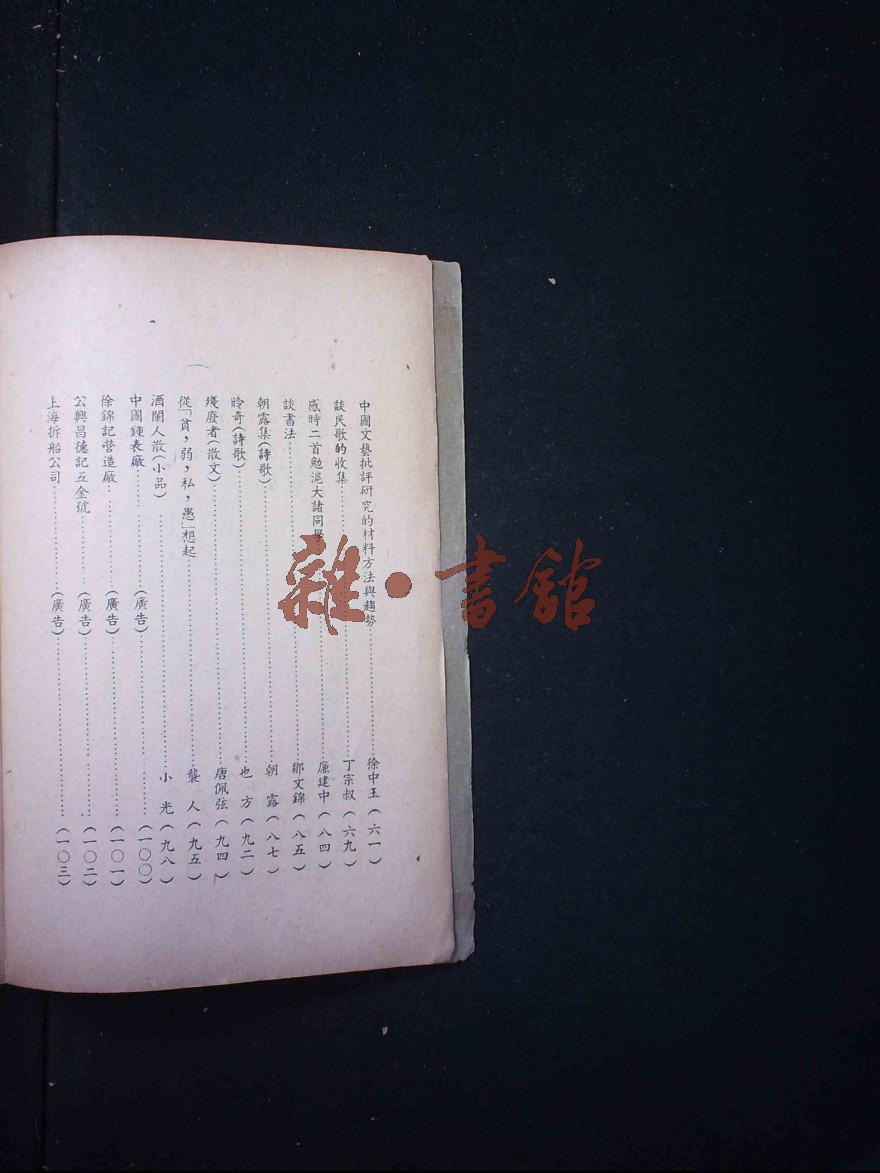 中國文藝批評研究的材料方法與趨勢……徐中玉(六一)
談民歌的收集……丁宗叔(六九)
感時二首勉滬大諸同學……廉建中(八四)
談書法……鄒文錦(八五)
朝露集(詩歌)……朝 露(八七)
昤奇(詩歌)……也 方(九二)
殘廢者(散文)……唐佩弦(九四)
從「貧，弱，私，愚」想起……龔 人(九五)
酒闌人散(小品)……小 光(九八)
中國鍾表廠……(廣告)……(一〇〇)
徐錦記營造廠……(廣告)……(一〇一)
公興昌德記五金號……(廣告)……(一〇二)
上海拆船公司……(廣告)……(一〇三)
雜·書館